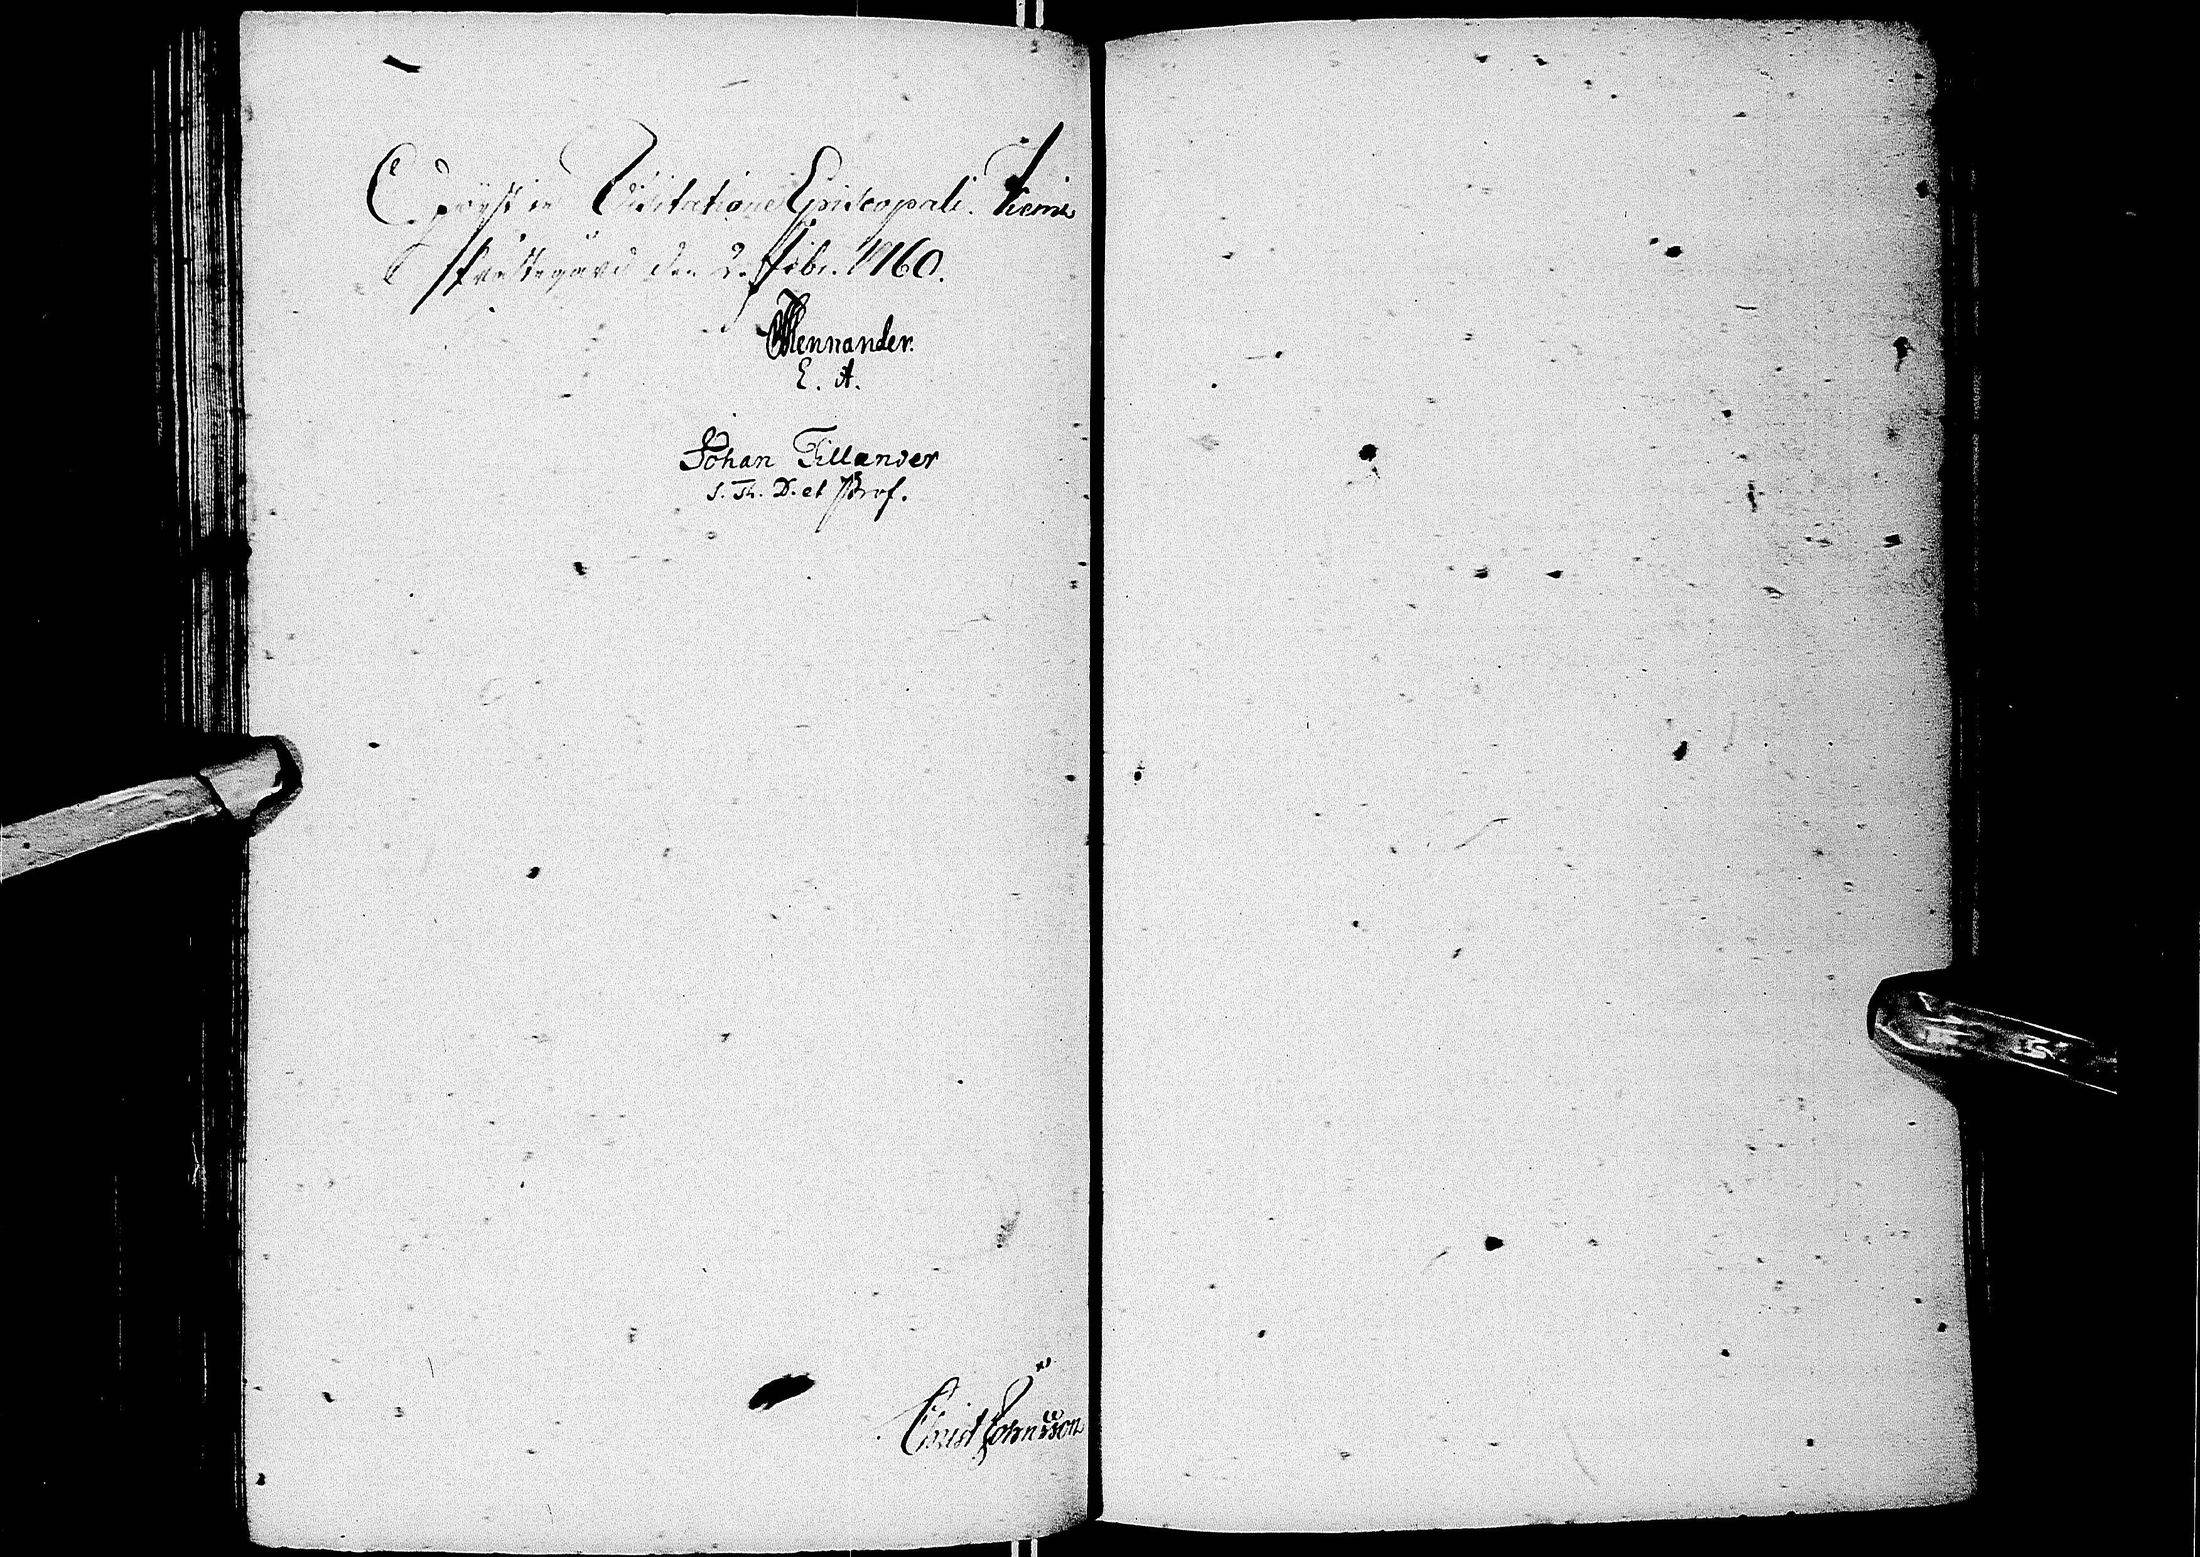 in Visitatione Episcopali. Kiemi
Prästegård den 2. Febr. 1760.
Mennander.
E. A.
Johan Tillander
S. Th. D. et Prof.
Christ Johnsson